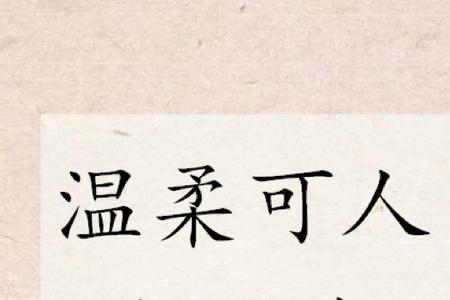 温柔可人